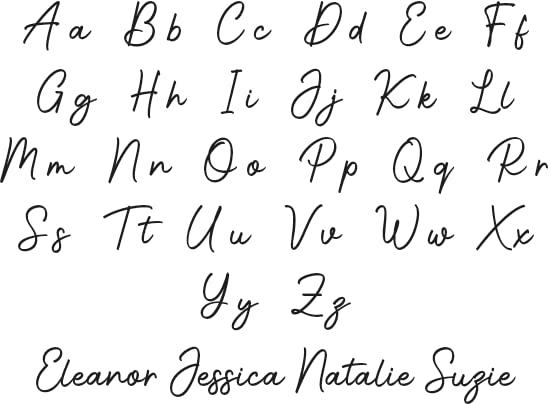 Aa Bb Cc Dd Ee Ff
Gg Hh Ii Jj Kk Ll
Mm Nn Oo Pp Qq Rr
Ss Tt Uu Vv Ww Xx
Yy Zz
Eleanor Jessica Natalie Suzie